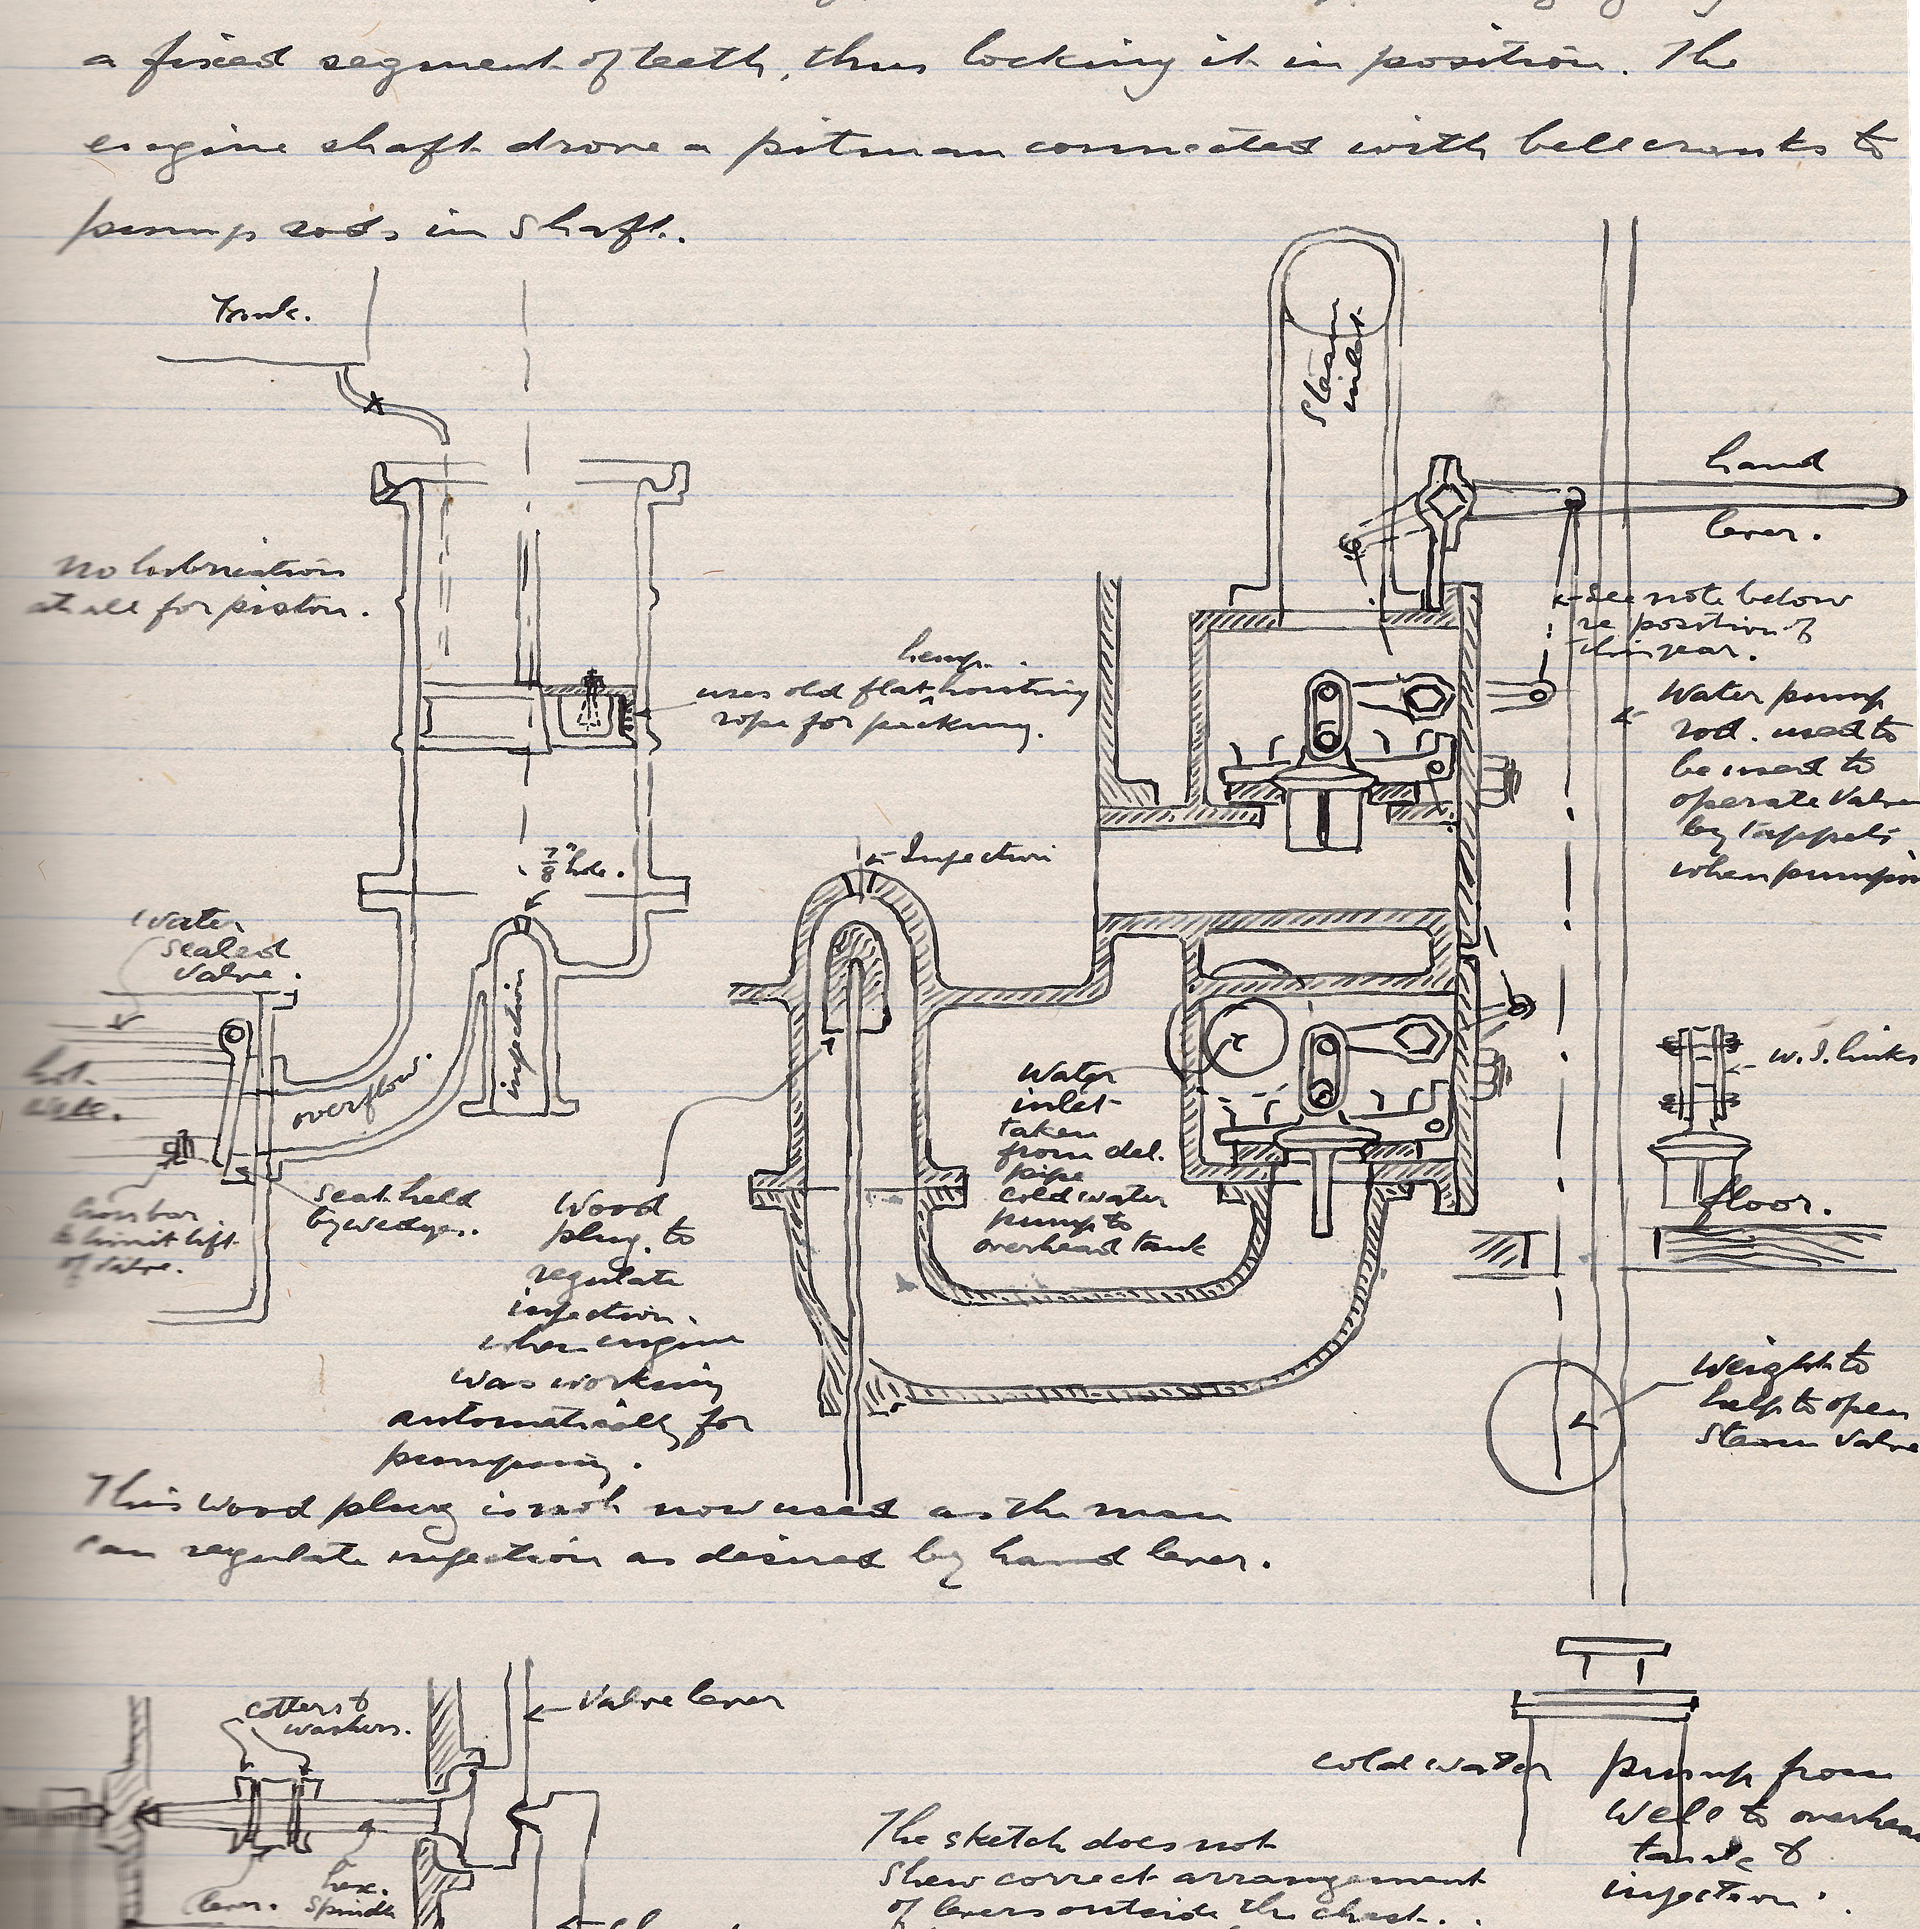 a fixed segment of teeth, thus locking it in position. The
engine shaft drove a pitman connected with bellcranks to
pump rods in shaft.
Tank.
Steam
inlet
hand
lever.
No lubrication
at all for piston.
see note below
re position of
this gear.
hemp
uses old flat ^ hoisting
rope for packing.
Water pump
rod. used to
be used to
operate Valve
by tappets
when pumping
7/8" hole.
Injection
Water
sealed
Valve.
injection
overflow.
hot
Water
inlet
taken
from del.
pipe
cold water
pump to
overhead tank
W.I. links
floor.
Cross bar
to limit lift
of Valve.
seat held
by wedges.
Wood
plug to
regulate
injection.
when engine
was working
automatically for
pumping.
Weight to
help to open
Steam Valve
This wood plug is not now used as the man
can regulate injection as desired by hand lever.
cotters &
washers.
Valve lever
lever.
hex.
Spindle
cold water pump from
Well to overhead
tank &
injection.
The sketch does not
shew correct arrangement
of levers outside the chest.